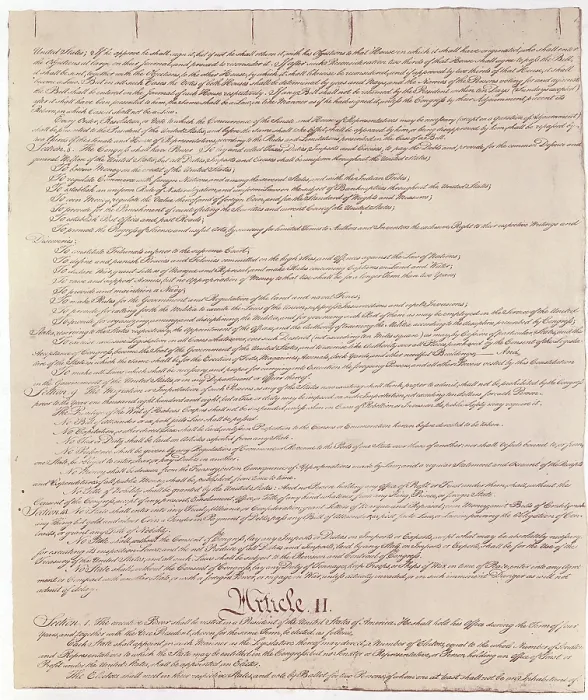 United States; If he approve he shall sign it, but if not he shall return it, with his Objections to that House in which it shall have originated, who shall enter
the Objections at large on their Journal, and proceed to reconsider it. If after such Reconsideration two thirds of that House shall agree to pass the Bill,
it shall be sent, together with the Objections, to the other House, by which it shall likewise be reconsidered, and if approved by two thirds of that House, it shall
become a Law. But in all such Cases the Votes of both Houses shall be determined by yeas and Nays, and the Names of the Persons voting for and against
the Bill shall be entered on the Journal of each House respectively. If any Bill shall not be returned by the President within ten Days (Sundays excepted)
after it shall have been presented to him, the Same shall be a Law, in like Manner as if he had signed it, unless the Congress by their Adjournment prevent its
Return, in which Case it shall not be a Law.
Every Order, Resolution, or Vote to which the Concurrence of the Senate and House of Representatives may be necessary (except on a question of Adjournment)
shall be presented to the President of the United States; and before the Same shall take Effect, shall be approved by him, or being disapproved by him, shall be repassed by
two thirds of the Senate and House of Representatives, according to the Rules and Limitations prescribed in the Case of a Bill.
Section. 8. The Congress shall have Power To lay and collect Taxes, Duties, Imposts and Excises, to pay the Debts and provide for the common Defence and
general Welfare of the United States; but all Duties, Imposts and Excises shall be uniform throughout the United States;
To borrow Money on the credit of the United States;
To regulate Commerce with foreign Nations, and among the several States, and with the Indian Tribes;
To establish an uniform Rule of Naturalization, and uniform Laws on the subject of Bankruptcies throughout the United States;
To coin Money, regulate the Value thereof, and of foreign Coin, and fix the Standard of Weights and Measures;
To provide for the Punishment of counterfeiting the Securities and current Coin of the United States;
To establish Post Offices and post Roads;
To promote the Progress of Science and useful Arts, by securing for limited Times to Authors and Inventors the exclusive Right to their respective Writings and
Discoveries;
To constitute Tribunals inferior to the supreme Court;
To define and punish Piracies and Felonies committed on the high Seas, and Offences against the Law of Nations;
To declare War, grant Letters of Marque and Reprisal, and make Rules concerning Captures on Land and Water;
To raise and support Armies, but no Appropriation of Money to that Use shall be for a longer Term than two Years;
To provide and maintain a Navy;
To make Rules for the Government and Regulation of the land and naval Forces;
To provide for calling forth the Militia to execute the Laws of the Union, suppress Insurrections and repel Invasions;
To provide for organizing, arming, and disciplining, the Militia, and for governing such Part of them as may be employed in the Service of the United
States, reserving to the States respectively, the Appointment of the Officers, and the Authority of training the Militia according to the discipline prescribed by Congress;
To exercise exclusive Legislation in all Cases whatsoever, over such District (not exceeding ten Miles square) as may, by Cession of particular States, and the
Acceptance of Congress, become the Seat of the Government of the United States, and to exercise like Authority over all Places purchased by the Consent of the Legisla-
ture of the State in which the Same shall be, for the Erection of Forts, Magazines, Arsenals, dock-Yards, and other needful Buildings;—And
To make all Laws which shall be necessary and proper for carrying into Execution the foregoing Powers, and all other Powers vested by this Constitution
in the Government of the United States, or in any Department or Officer thereof.
Section. 9. The Migration or Importation of such Persons as any of the States now existing shall think proper to admit, shall not be prohibited by the Congress
prior to the Year one thousand eight hundred and eight, but a Tax or duty may be imposed on such Importation, not exceeding ten dollars for each Person.
The Privilege of the Writ of Habeas Corpus shall not be suspended, unless when in Cases of Rebellion or Invasion the public Safety may require it.
No Bill of Attainder or ex post facto Law shall be passed.
No Capitation, or other direct, Tax shall be laid, unless in Proportion to the Census or Enumeration herein before directed to be taken.
No Tax or Duty shall be laid on Articles exported from any State.
No Preference shall be given by any Regulation of Commerce or Revenue to the Ports of one State over those of another: nor shall Vessels bound to, or from,
one State, be obliged to enter, clear, or pay Duties in another.
No Money shall be drawn from the Treasury, but in Consequence of Appropriations made by Law; and a regular Statement and Account of the Receipts
and Expenditures of all public Money shall be published from time to time.
No Title of Nobility shall be granted by the United States: And no Person holding any Office of Profit or Trust under them, shall, without the
Consent of the Congress, accept of any present, Emolument, Office, or Title, of any kind whatever, from any King, Prince, or foreign State.
Section. 10. No State shall enter into any Treaty, Alliance, or Confederation; grant Letters of Marque and Reprisal; coin Money; emit Bills of Credit; make
any Thing but gold and silver Coin a Tender in Payment of Debts; pass any Bill of Attainder, ex post facto Law, or Law impairing the Obligation of Con-
tracts, or grant any Title of Nobility.
No State shall, without the Consent of the Congress, lay any Imposts or Duties on Imports or Exports, except what may be absolutely necessary
for executing it's inspection Laws: and the net Produce of all Duties and Imposts, laid by any State on Imports or Exports, shall be for the Use of the
Treasury of the United States; and all such Laws shall be subject to the Revision and Controul of the Congress.
No State shall, without the Consent of Congress, lay any Duty of Tonnage, keep Troops, or Ships of War in time of Peace, enter into any Agree-
ment or Compact with another State, or with a foreign Power, or engage in War, unless actually invaded, or in such imminent Danger as will not
admit of delay.
Article. II.
Section. 1. The executive Power shall be vested in a President of the United States of America. He shall hold his Office during the Term of four
Years, and, together with the Vice President, chosen for the same Term, be elected, as follows
Each State shall appoint, in such Manner as the Legislature thereof may direct, a Number of Electors, equal to the whole Number of Senators
and Representatives to which the State may be entitled in the Congress: but no Senator or Representative, or Person holding an Office of Trust or
Profit under the United States, shall be appointed an Elector.
The Electors shall meet in their respective States, and vote by Ballot for two Persons, of whom one at least shall not be an Inhabitant of